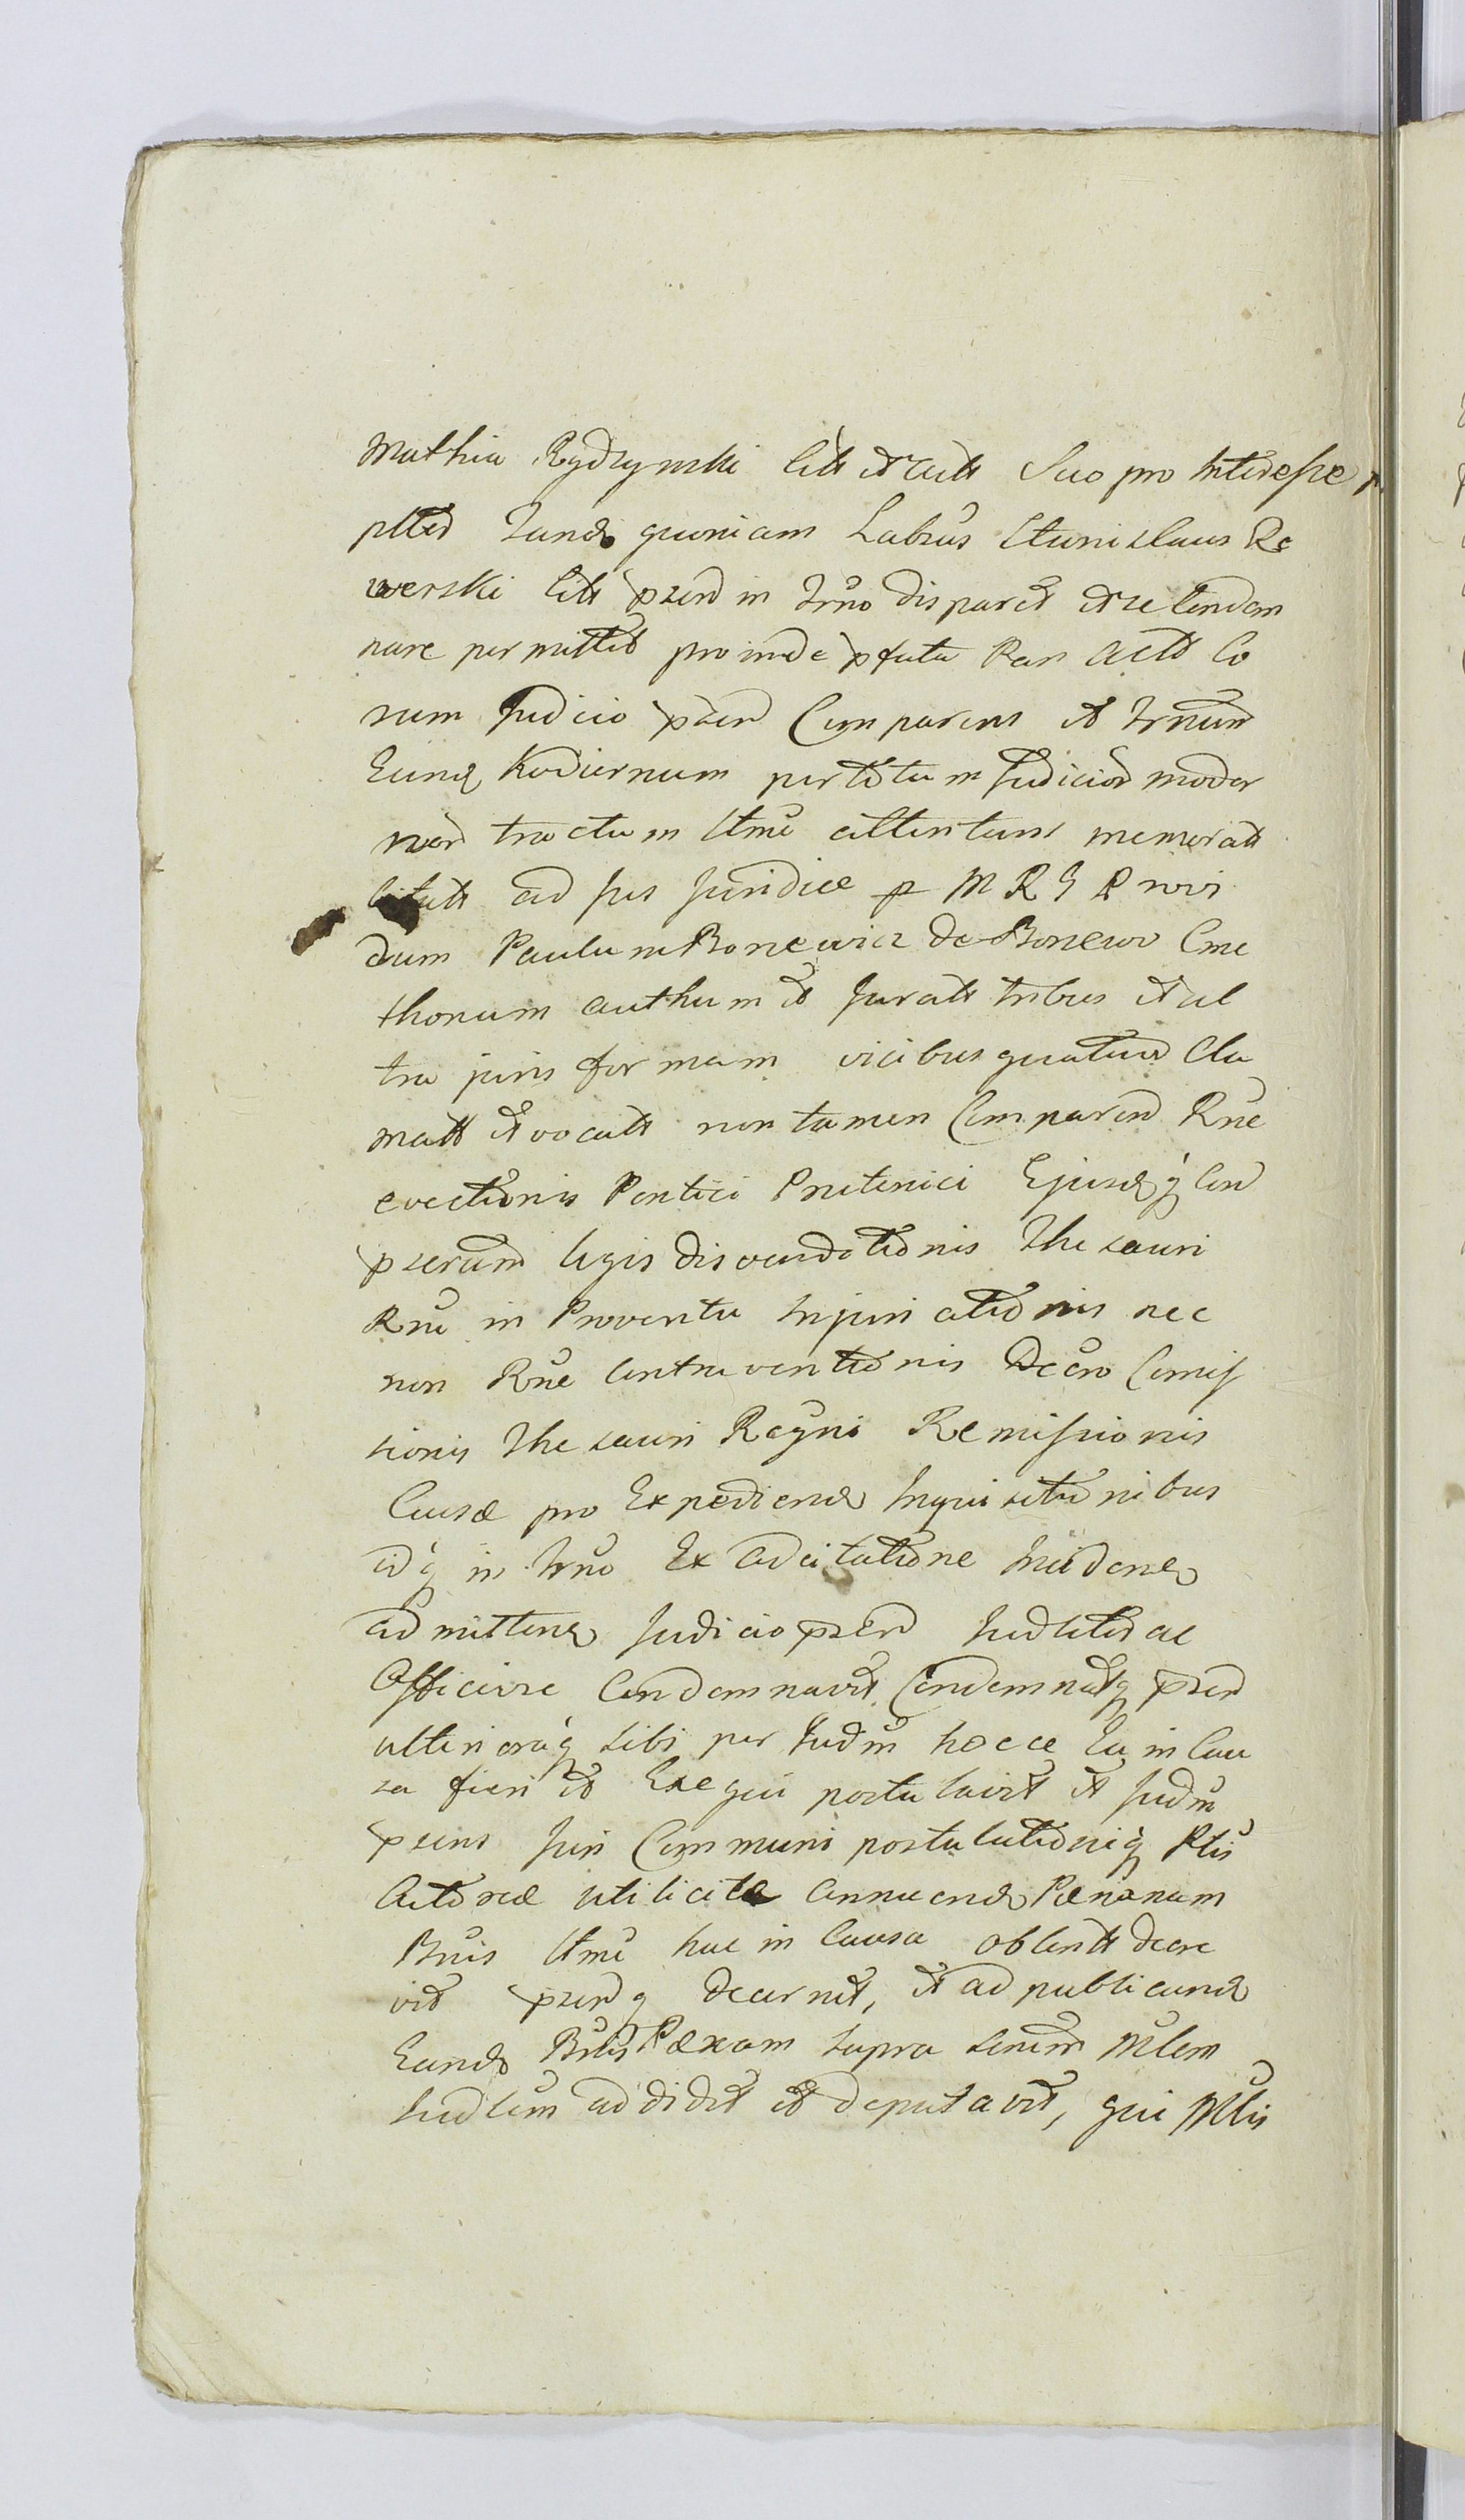 Mathia Rydzynski Citt et recitt Suo pro Interesse
ptted Tands quoniam Labrus Stanislaus Re
werski Citt pzend in Trno disparet et se condem
nare permittet proinde pfata Pars Acto Co
ram Judicio pzen Comparens et Trnum
Eund hodiernum per totum Judicior moder
nor tractum Ltme attentans memoratt
Citatt ad jus Juridice p M R G Provi
dum Paulum Boncewicz de Bonzewo Cme
thonum authum et Juratt tribus et ul
tra juris formam vicibus quatuor Cla
matt et vocatt non tamen Comparend Rne
evectionis Pontici Prutenici Ejusdq Con
pserum legis disvenditionis Thesauri
Rni in Proventu Injuriationis nec
non Rne Contraventionis Decro Comis
sionis Thesauri Regni Remissionis
Causæ pro Expediend Inquisitionibus
idq in Trno Ex Adcitatione Inciden
admitten Judicio pzen Judlited ac
Officiose Condemnavit Condemnatq pzen
ulterioraq sibi per Judm hocce Ea in Cau
sa fieri et Exequi postulavit et Judm
pzens Juri Communi postulationiq Ptis
Actoreæ utilicitæ annuend Pænanam
Bnis Ltme hac in Causa obtentt decre
vit pzenq decernit, et ad publicand
Eand Bnis Pænam supra Mlem
Judlem addidit et deputavit, qui Mlis